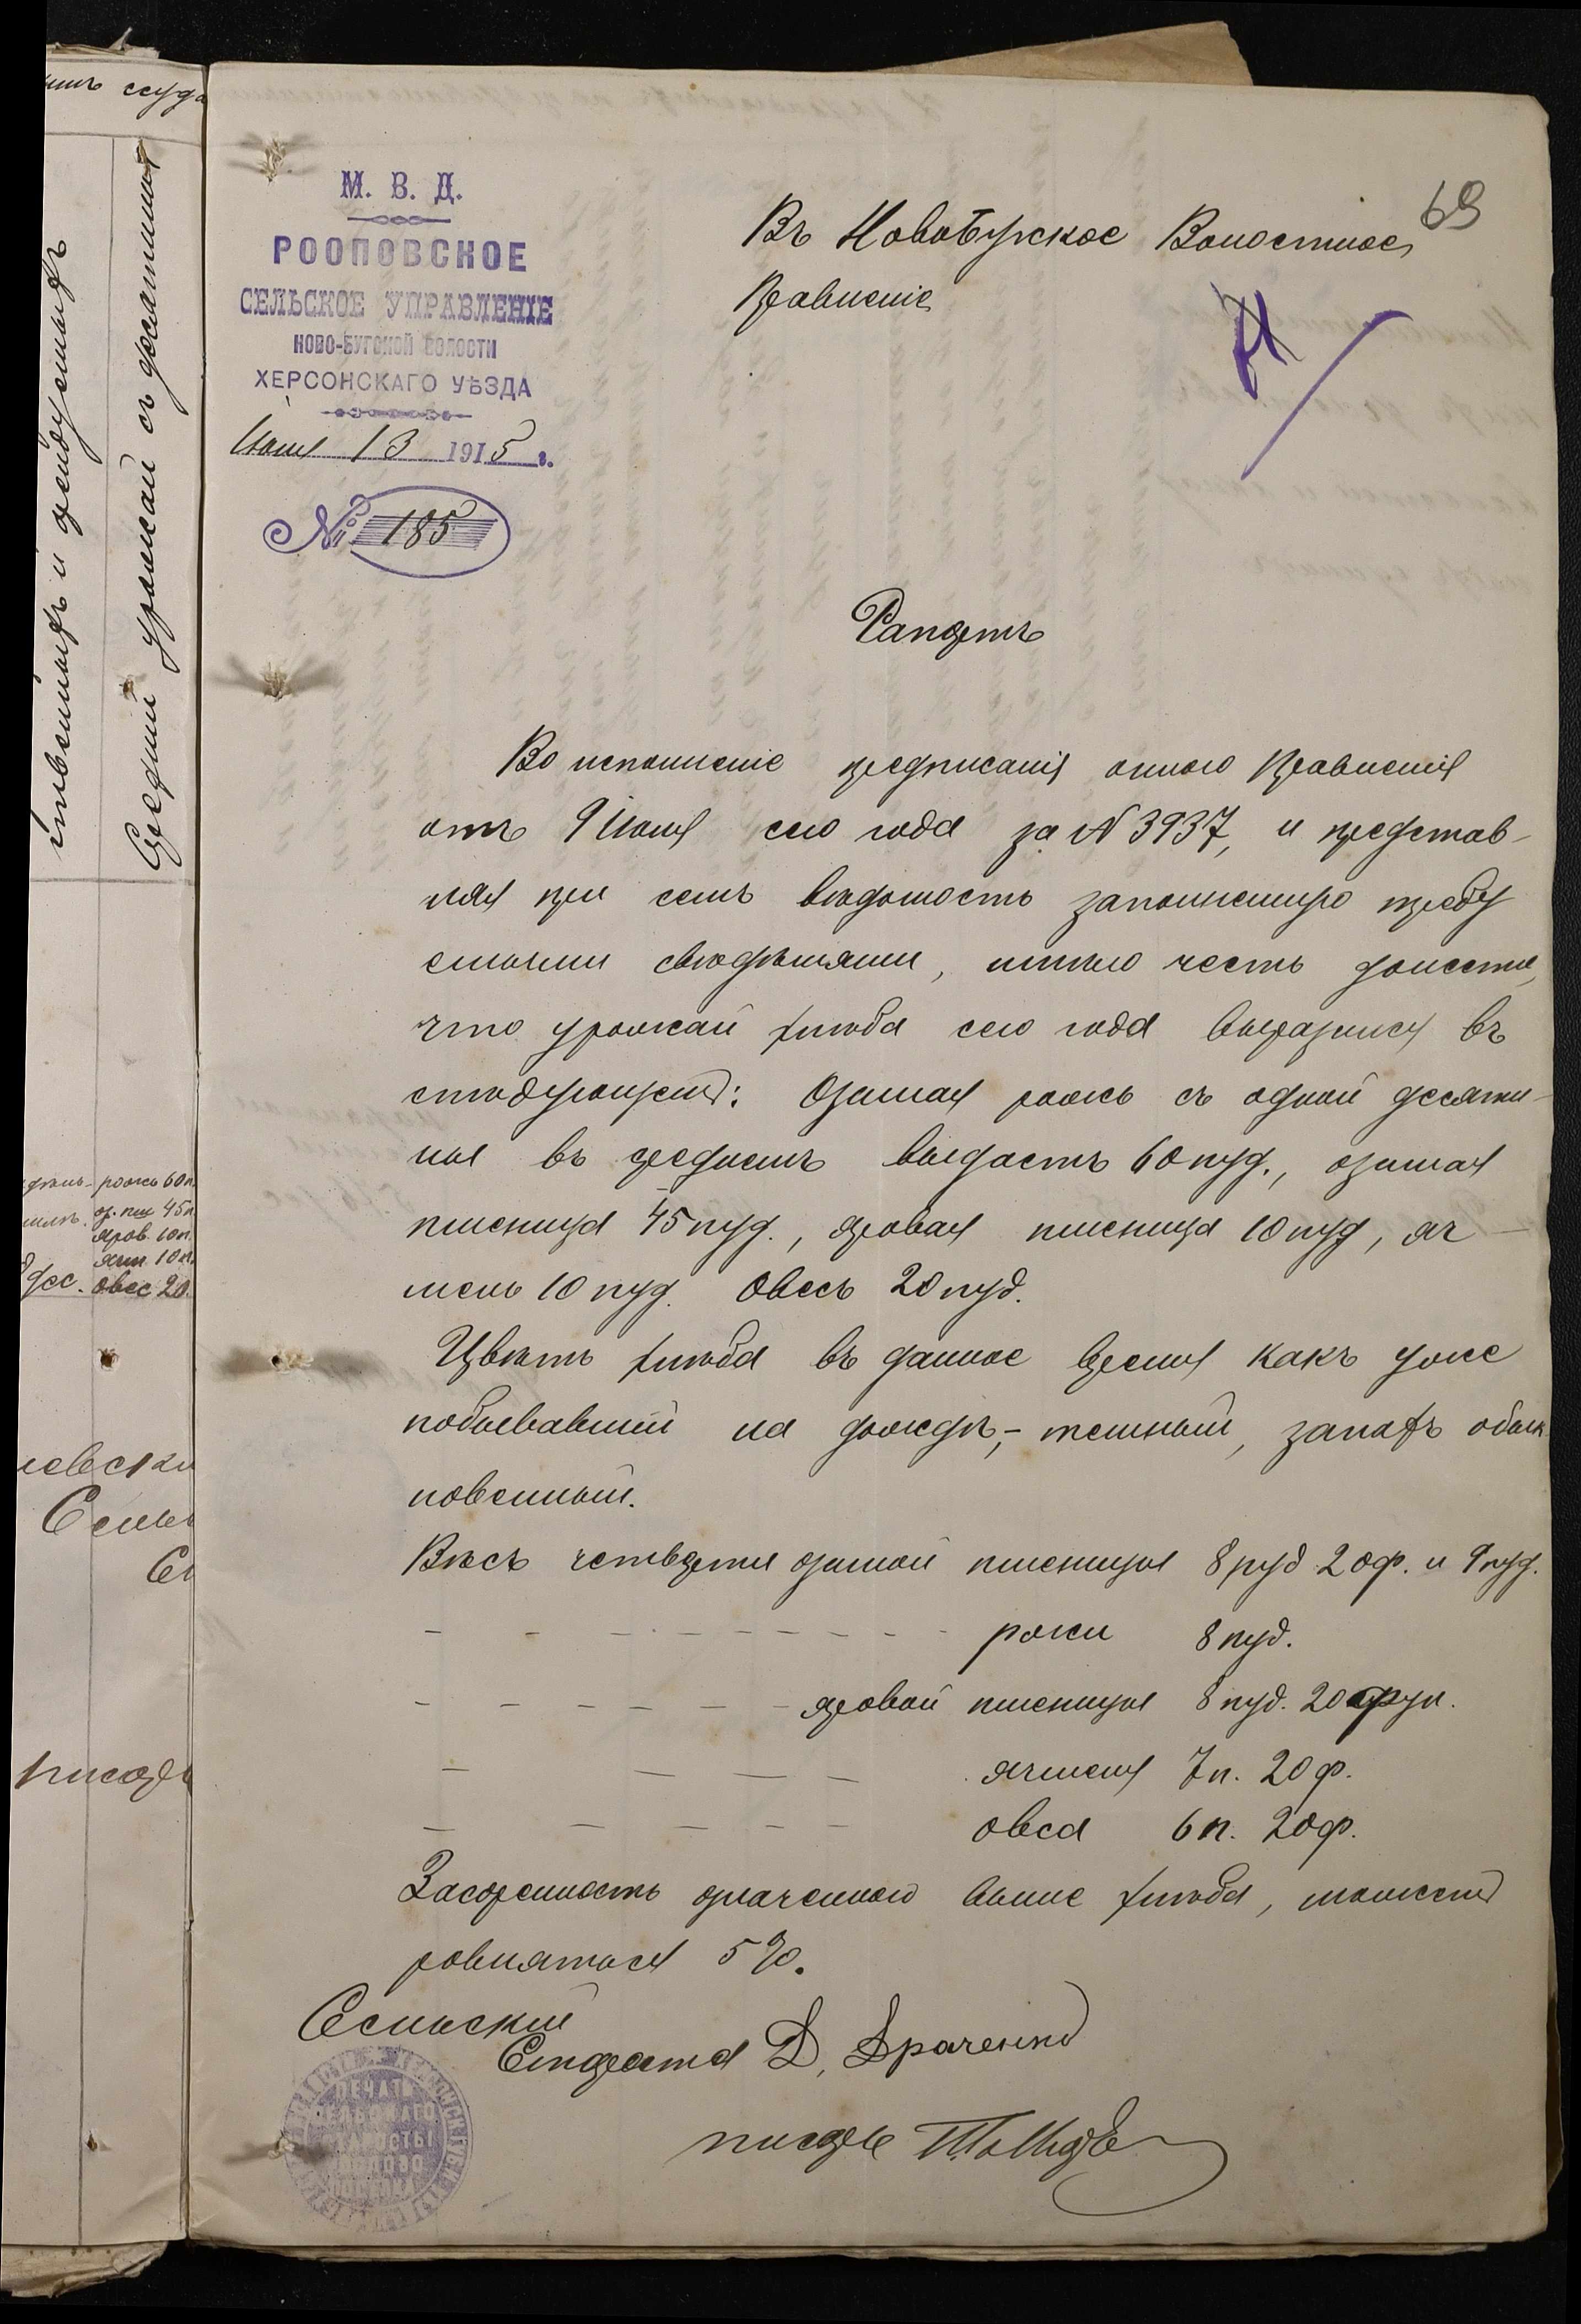 69
М. В. Д.
РООПОВСКОЕ
СЕЛЬСКОЕ УПРАВЛЕНІЕ
НОВО-БУГСКОЙ ВОЛОСТИ
ХЕРСОНСКАГО УѢЗДА
13 1915 г.
№ 185
Въ Новобугское Волостное
Правленіе
Рапортъ
Во исполненіе предписанія онаго Правленія
отъ 9 сего года за № 3937, и представ-
ляя при семъ вѣдомость заполненную требу
емыми свѣдѣніями, имѣю честь донести,
что урожай хлѣба сего года выразился въ
слѣдующемъ: Озимая рожь съ одной десяти-
ны въ среднемъ выдастъ 60 пуд., озимая
пшеница 45 пуд., яровая пшеница 10 пуд, яч-
мень 10 пуд. Овесъ 20 пуд.
Цвѣтъ хлѣба въ данное время какъ уже
побывавшій на дождѣ,- темный, запахъ обык
новенный.
Вѣсъ четверти озимой пшеницы 8 пуд 20ф. и 9 пуд.
- - - - - - - - - ржи 8 пуд.
- - - - - - яровой пшеницы 8 пуд. 20 фун.
- - - - ячменя 7 п. 20 ф.
- - - - - овса 6 п. 20ф.
Засоренность означеннаго выше хлѣба, можетъ
ровнятся 5%.
Сельскій
Староста Д. Драченко
писарь
ссуда
Средній урожай съ десятины
рожь 60 п.
оз. пш 45 п
яров. 10 п.
ячм 10 п.
дес. овес 20.
писарь
ПЕЧАТЬ
СЕЛЬСКАГО
СТАРОСТЫ